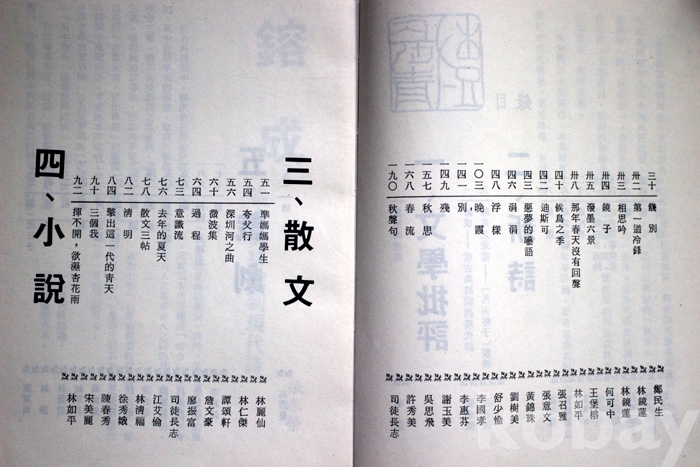 三十 餞別 鄭民生
卅二 第一道冷鋒 林鏡蓮
卅三 相思吟 林鏡蓮
卅四 鏡子 何可中
卅五 潑墨六景 王堡榕
卅八 那年春天沒有回聲 林如平
四十 候鳥之季 張召雅
四二 迪斯可 張意文
四三 惡夢的囈語 黃錦珠
四六 涓涓 劉樹美
四八 浮樣 舒少惟
一○三 晚霞 李國孝
一四一 別, 李惠芬
一四九 殘 謝玉美
一五七 秋思 吳思飛
一六八 春流 許秀美
一九○ 秋聲句 司徒長志
三、散文
五一 準媽媽學生 林麗仙
五四 夸父行 林仁傑
五六 深圳河之曲 譚頌軒
六十 微波集 詹文豪
六四 過程 廖振富
七三 意識流 司徒長志
七六 去年的夏天 江艾倫
七八 散文三帖 林清福
八二 清明 徐秀娥
八四 擎出這一代的青天 陳春秀
九十 三個我 宋美麗
九二 揮不開，欲濕杏花雨 林如平
四、小說
kobay